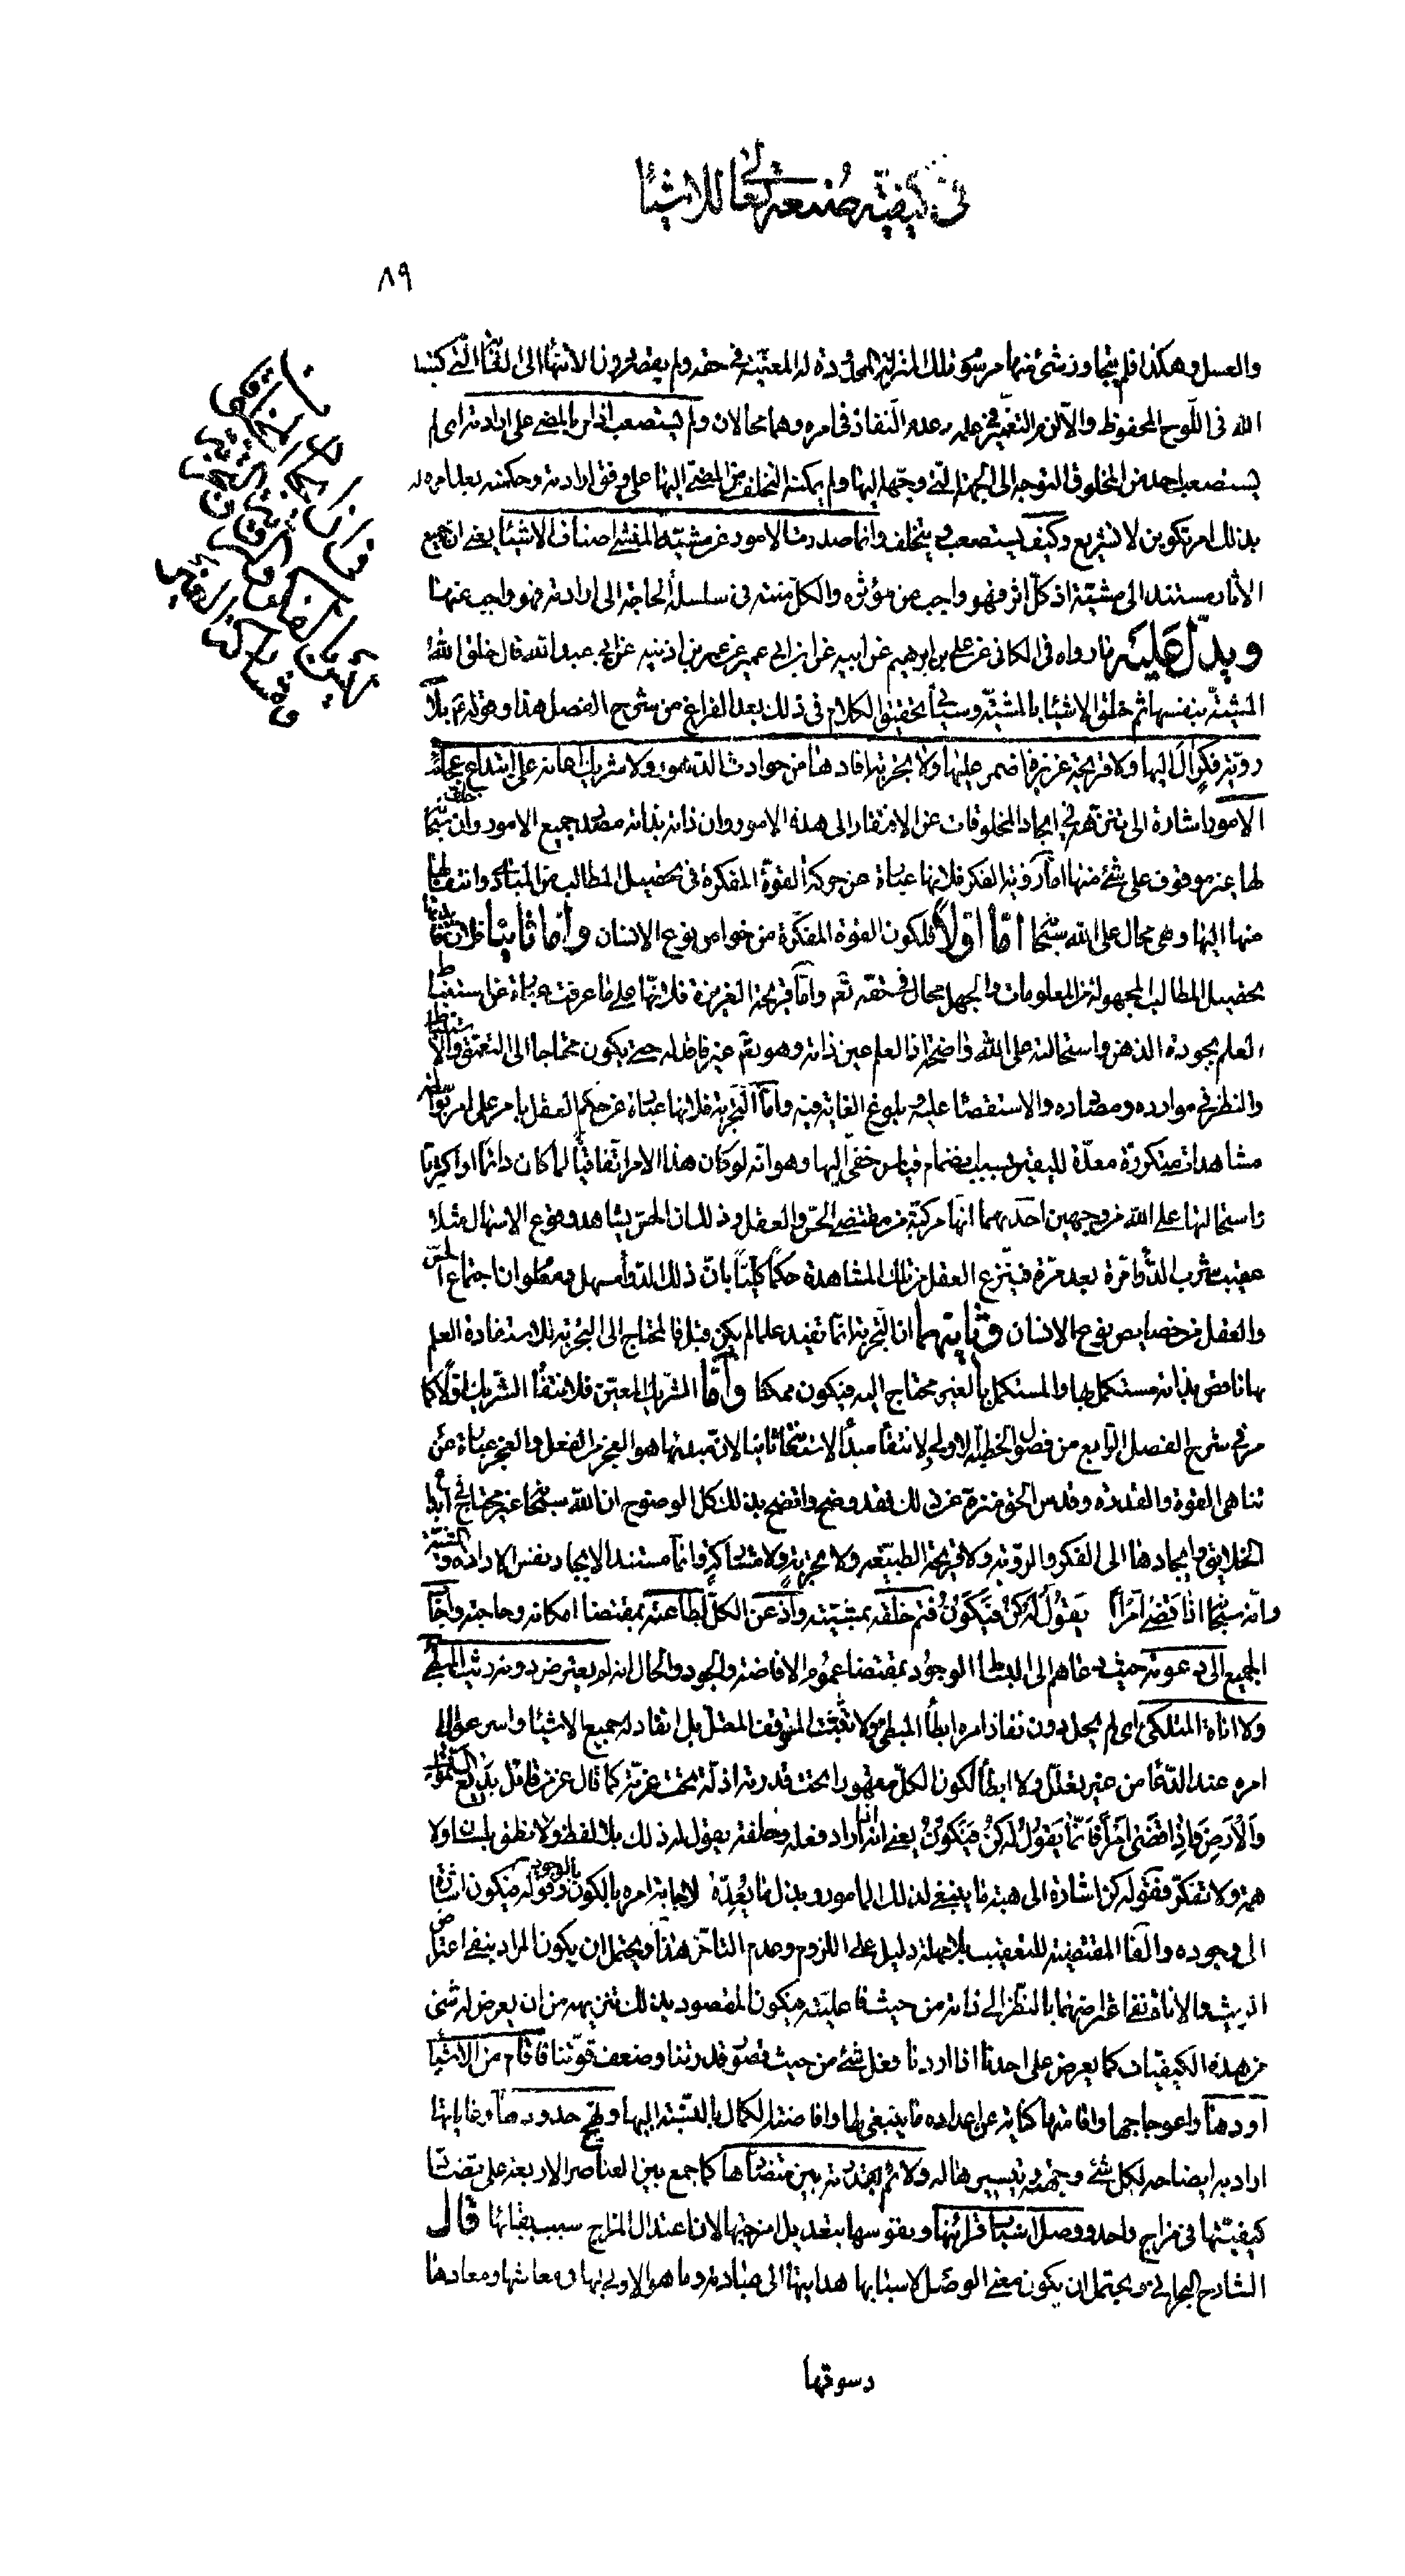 في كيفية صنعه تعالى للاشيئا
٨٩
والعسل وهكذا فلم يتجاوز شئ منها مرسوم تلك المنزلة المحدودة له المعيّنة في حقه ولم يقصر دون الانتهاء الى الغاية الّتي كتبها
الله فى اللّوح المحفوظ والّا لزم التغيّر في علمه وعدم النّفاذ فى امره وهما محالان ولم يستصعب اذ امر بالمضى على ارادته اى لم
يستصعب احد من المخلوق التوجه الى الجهة الّتي وجّهه اليها ولم يمكنه التخلف من المضىّ اليها على وفق ارادته وحكمته بعد امره له
بذلك امر تكوين لا تشريع وكيف يستصعب و يتخلف وانما صدرت الامور عن مشيّته المنشئ اصناف الاشيئا يعنى ان جميع
الاثار مستند الى مشيّته اذ كلّ اثر فهو واجب عن مؤثره والكل منته في سلسلة الحاجة الى ارادته فهو واجب عنها
ويدّل عليه ما رواه فى الكافى عن على بن ابرهيم عن ابيه عن ابن ابي عمير عن عمر بن اذينه عن ابي عبد الله قال خلق الله
المشيّة بنفسها ثم خلق الاشيئا بالمشيّة وسيأتي تحقيق الكلام فى ذلك بعد الفراغ من شرح الفصل هذا وقوله ع بلا
رويّة فكر ال اليها ولا قريحة غريزة اضمر عليها ولا تجربة افادها من حوادث الدهور ولا شريك اعانه على ابتداع عجائب
الامور اشارة الى تنزّهه في ايجاد المخلوقات عن الافتقار الى هذه الامور وان ذاته بذاته مصدر جميع الامور وان خلقه سبحانه
لها غير موقوف على شئ منها امّا رويّة الفكر فلانها عبارة عن حركة القوّة المفكرة فى تحصيل المطالب من المبادى وانتقالها
منها اليها وهى محال على الله سبحا امّا اوّلاً فلكون القوة المفكّرة من خواص نوع الانسان وأمّا ثانيا فلان فائدتها
تحصيل المطالب المجهولة من المعلومات والجهل محال في حقه تعم وامّا قريحة الغريزة فلانّها على ما عرفت عبارة عن استنباط
العلم بجودة الذهن واستحالته على الله واضحة اذ العلم عين ذاته وهو تعم غير فاقد له حتى يكون محتاجا الى التعمّق والاستنباط
والنظر في موارده ومصادره والاستقصا عليه و بلوغ الغاية فيه وامّا التّجربة فلانها عبارة عن حكم العقل بامر على امر بواسطة
مشاهدات متكررة معدّة لليقين بسبب انضمام قياس خفى اليها وهو انه لو كان هذا الامر اتّفاقيّا لما كان دائما او اكثريا
واستحالتها على الله من وجهين احدهما انها مركبة من مقتضى الحسّ والعقل وذلك ان الحسّ يشاهد وقوع الاسهال مثلا
عقيب شرب الدّواء مرّة بعد مرّة فينتزع العقل من تلك المشاهدة حكما كليّاً بانّ ذلك الدّواء مسهل ومعلوم ان اجتماع الحسّ
والعقل من خصايص نوع الانسان وثانيهما ان التّجربة انّما تفيد علما لم يكن قبل فالمحتاج الى التّجربة للاستفادة العلم
بها ناقص بذاته مستكمل بها والمستكمل بالغير محتاج اليه فيكون ممكنا وأمّا الشّريك المعين فلانتفا الشّريك اوّلا كما
مر في شرح الفصل الرّابع من فصول الخطبة الاولى ولانتفا مبدأ الاستعانة ثانيا لان مبدئها هو العجز من الفعل والعجز عبارة عن
تناهى القوة والقدرة وقدس الحق منزه عن ذلك فقد وضح واتضح بذلك كل الوضوح ان الله سبحا غير محتاج في ابداء
الخلايق وايجادها الى الفكر والرويّة ولا قريحة الطبيعه ولا تجربة ولا مشاركة وانما مستند الايجاد نفس الارادة والمشيّة
وانّه سبحانه اذا قضى امرا يقول له كن فيكون فتم خلقه بمشيّته واذعن الكلّ لطاعته بمقتضا امكانه وحاجته واجاب
الجميع الى دعوته حيث دعاهم الى بساط الوجود بمقتضا عموم الافاضة والجود والحال انه لم يعترض دونه ريث المبطئ
ولا اناة المتلكئ اى لم يحل دون نفاذ امره ابطأ المبطى ولا تثبّت المتوقف المعتل بل انقاد له جميع الاشيئا واسرعوا الى
امره عند الدّعا من غير تعلّل ولا ابطأ لكون الكلّ مقهورا تحت قدرته اذلّة تحت عزّته كما قال عز من قائل بديع السّموات
والارض واذا قضى امرا فانّما يقول له كن فيكون يعنى انه اذا اراد فعله وخلقه يقول له ذلك بلا لفظ ولا نطق بلسان ولا
همة ولا تفكّر فقوله كن اشارة الى هبة ما ينبغى لذلك المامور وبذل ما يُعِدّه لاجابة امره بالكون بالوجود وقوله فيكون اشارة
الى وجوده والفا المقتضية للتعقيب بلا مهلة دليل على اللزوم وعدم التاخّر هذا ويحتمل ان يكون المراد بنفى اعتراض
الريث والاناة نفى اعتراضهما بالنظر الى ذاته من حيث فاعليّته فيكون المقصود بذلك تنزيهه من ان يعرض له شئ
من هذه الكيفيّات كما يعرض على احدنا اذا اردنا فعل شئ من حيث قصور قدرتنا وضعف قوّتنا فاقام من الاشيئا
اودها واعوجاجها واقامتها كناية عن اعداده ما ينبغى لها وافاضة الكمال بالنسبة اليها ونهج حدودها وغاياتها
اراد به ايضاحه لكل شئ وجهته وتيسيرها له ولائم بقدرته بين متضادّها كما جمع بين العناصر الاربعة على تضاد
كيفيّتها فى مزاج واحد ووصل اسباب قرائنها ونفوسها بتعديل امزجتها لان اعتدال المزاج سبب بقائها قال
الشارح البحراني ويحتمل ان يكون معنى الوصل لاسبابها هدايتها الى عبادته وما هو الاولى بها في معاشها ومعادها
وسوقها